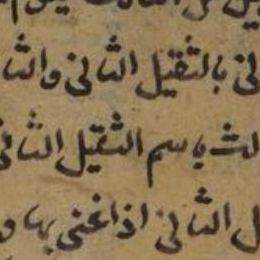 ني بالثقيل الثاني والثا
لث باسم الثقيل الثاني
ل الثاني اذا غنى بها و